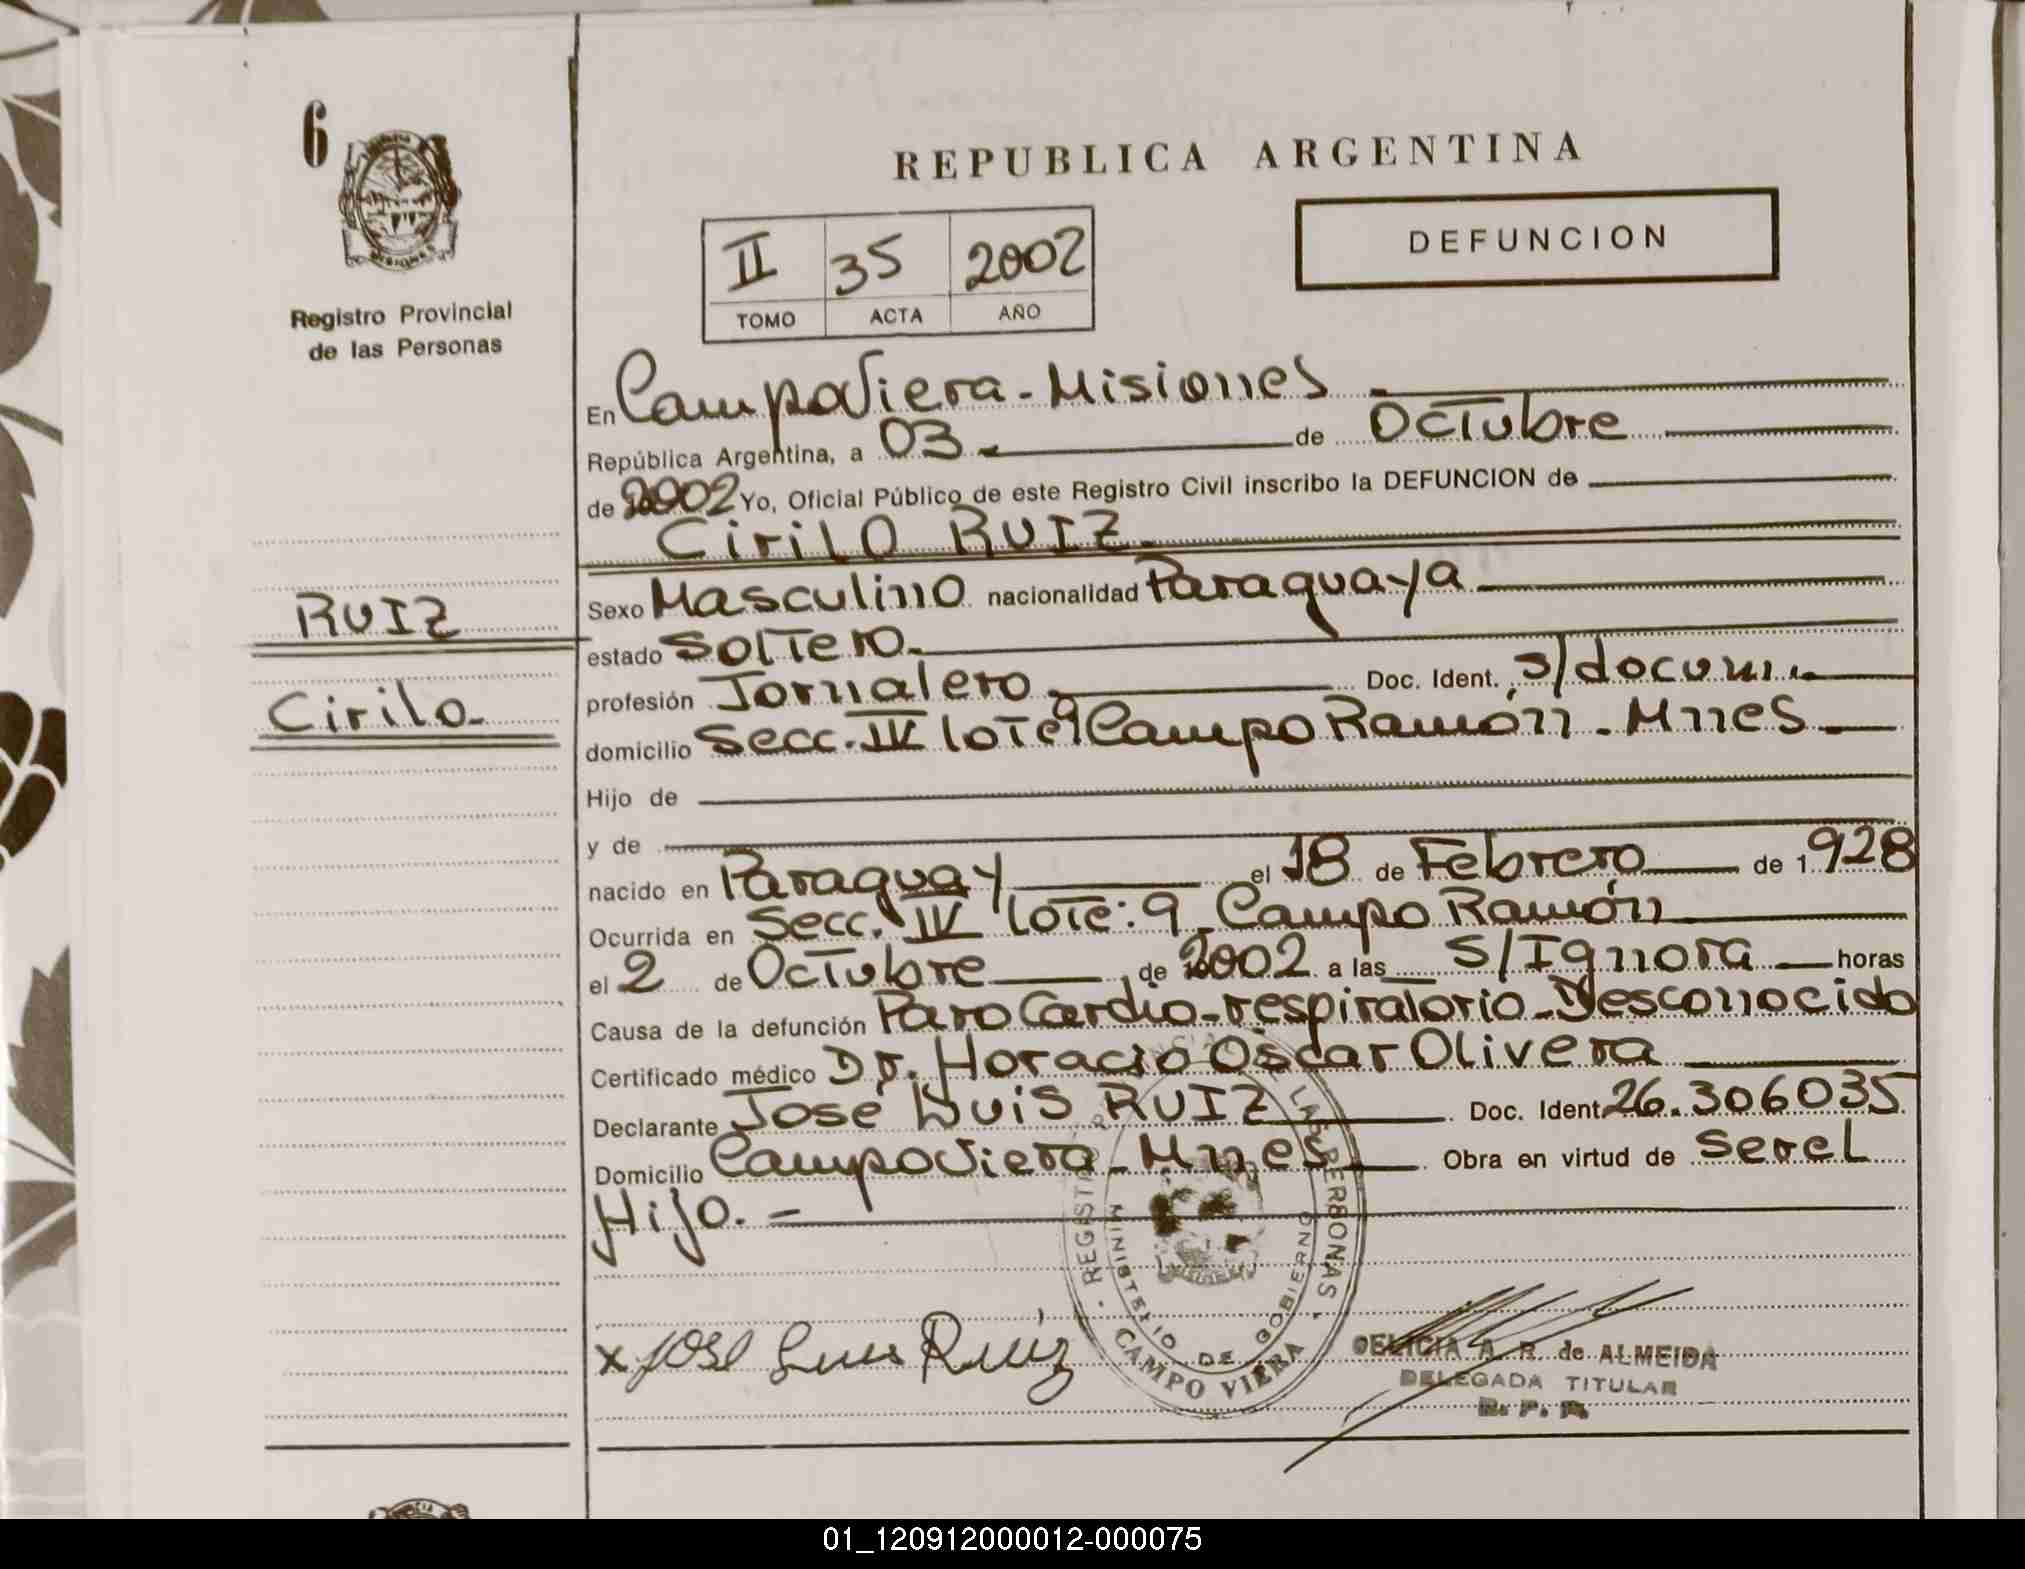 6
REPUBLICA ARGENTINA
DEFUNCION
II 35 2002
TOMO ACTA AÑO
Registro Provincial
de las Personas
RUIZ
Cirilo.
En Campo Viera - Misiones
República Argentina, a 03 de Octubre
de 2002 Yo, Oficial Público de este Registro Civil inscribo la DEFUNCION de
Cirilo RUIZ.
Sexo Masculino nacionalidad Paraguaya
estado Soltero.
profesión Jornalero Doc. Ident. s/docum.
domicilio Secc. IV lote 9 Campo Ramón - Mnes.
Hijo de
y de
nacido en Paraguay el 18 de Febrero de 1928
Ocurrida en Secc. IV lote: 9 Campo Ramón
el 2 de Octubre de 2002 a las s/Ignora horas
Causa de la defunción Paro Cardio-respiratorio-Desconocido
Certificado médico Dr. Horacio Oscar Olivera
Declarante José Luis RUIZ Doc. Ident 26.306035
Domicilio Campo Viera - Mnes Obra en virtud de ser el
Hijo. -
REGISTRO PROVINCIAL DE LAS PERSONAS
MINISTERIO DE GOBIERNO
CAMPO VIERA
x Jose Luis Ruiz
DELICIA A. R. de ALMEIDA
DELEGADA TITULAR
R. P. P.
01_120912000012-000075